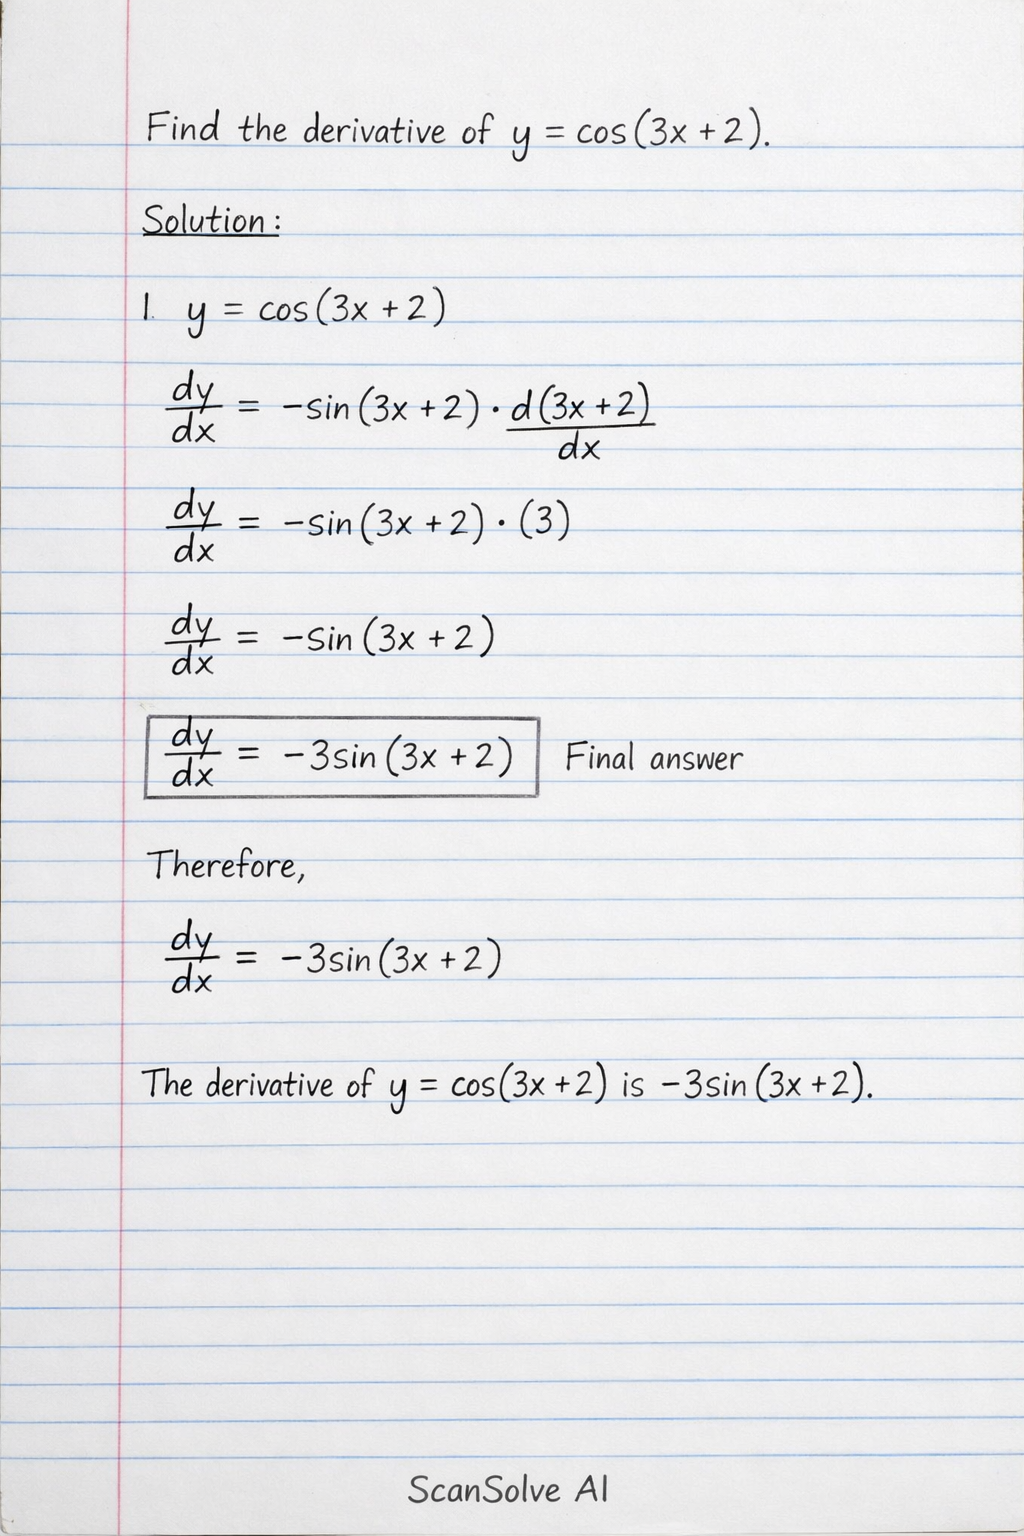 Find the derivative of y = cos(3x + 2).
Solution:
1. y = cos(3x + 2)
dy/dx = -sin(3x + 2) · d(3x + 2)/dx
dy/dx = -sin(3x + 2) · (3)
dy/dx = -sin(3x + 2)
dy/dx = -3sin(3x + 2) Final answer
Therefore,
dy/dx = -3sin(3x + 2)
The derivative of y = cos(3x + 2) is -3sin(3x + 2).
ScanSolve AI